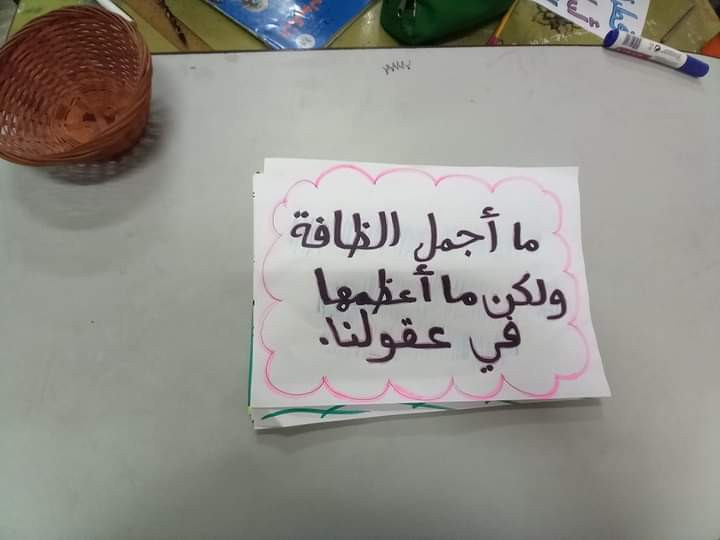 ما أجمل الظافة
ولكن ما أعظمها
في عقولنا.